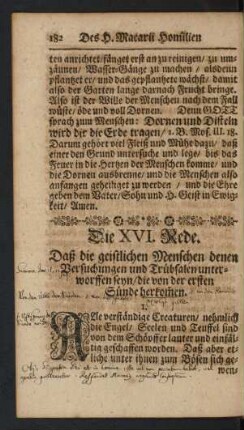 182 Des H. Macarii Homilien
ten anrichtet/ fänget erst an zu reinigen/ zu um-
zäunen/ Wasser-Gänge zu machen/ alsdenn
pflantzet er/ und das gepflantzete wächst/ damit
also der Garten lange darnach Frucht bringe.
Also ist der Wille der Menschen nach dem Fall
wüste/ öde und voll Dornen. Denn GOTT
sprach zum Menschen: Dornen und Disteln
wird dir die Erde tragen/ 1. B. Mos. III. 18.
Darum gehört viel Fleiß und Mühe dazu/ daß
einer den Grund untersuche und lege/ bis das
Feuer in die Hertzen der Menschen kommt/ und
die Dornen ausbrenne/ und die Menschen also
anfangen geheiliget zu werden/ und die Ehre
geben dem Vater/ Sohn und H. Geist in Ewig-
keit/ Amen.
Die XVI. Rede.
Daß die geistlichen Menschen denen
Versuchungen und Trübsalen unter-
worffen seyn/ die von der ersten
Sünde herkommen.
1.
Alle verständige Creaturen/ nehmlich
die Engel/ Seelen und Teuffel sind
von dem Schöpffer lauter und einfäl-
tig geschaffen worden. Daß aber et-
liche unter ihnen zum Bösen sich ge-
wen-